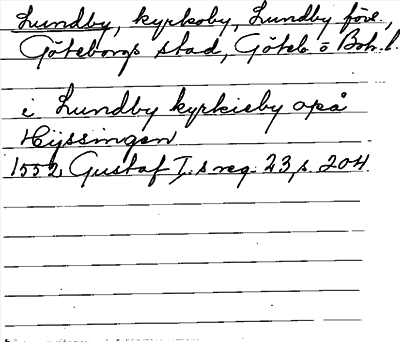 Lundby, kyrkoby, Lundby förs.,
Göteborgs stad, Göteb. o Boh. l.
i Lundby kyrkieby opå
Hijssingen
1552 Gustaf I:s reg. 23, s. 204.